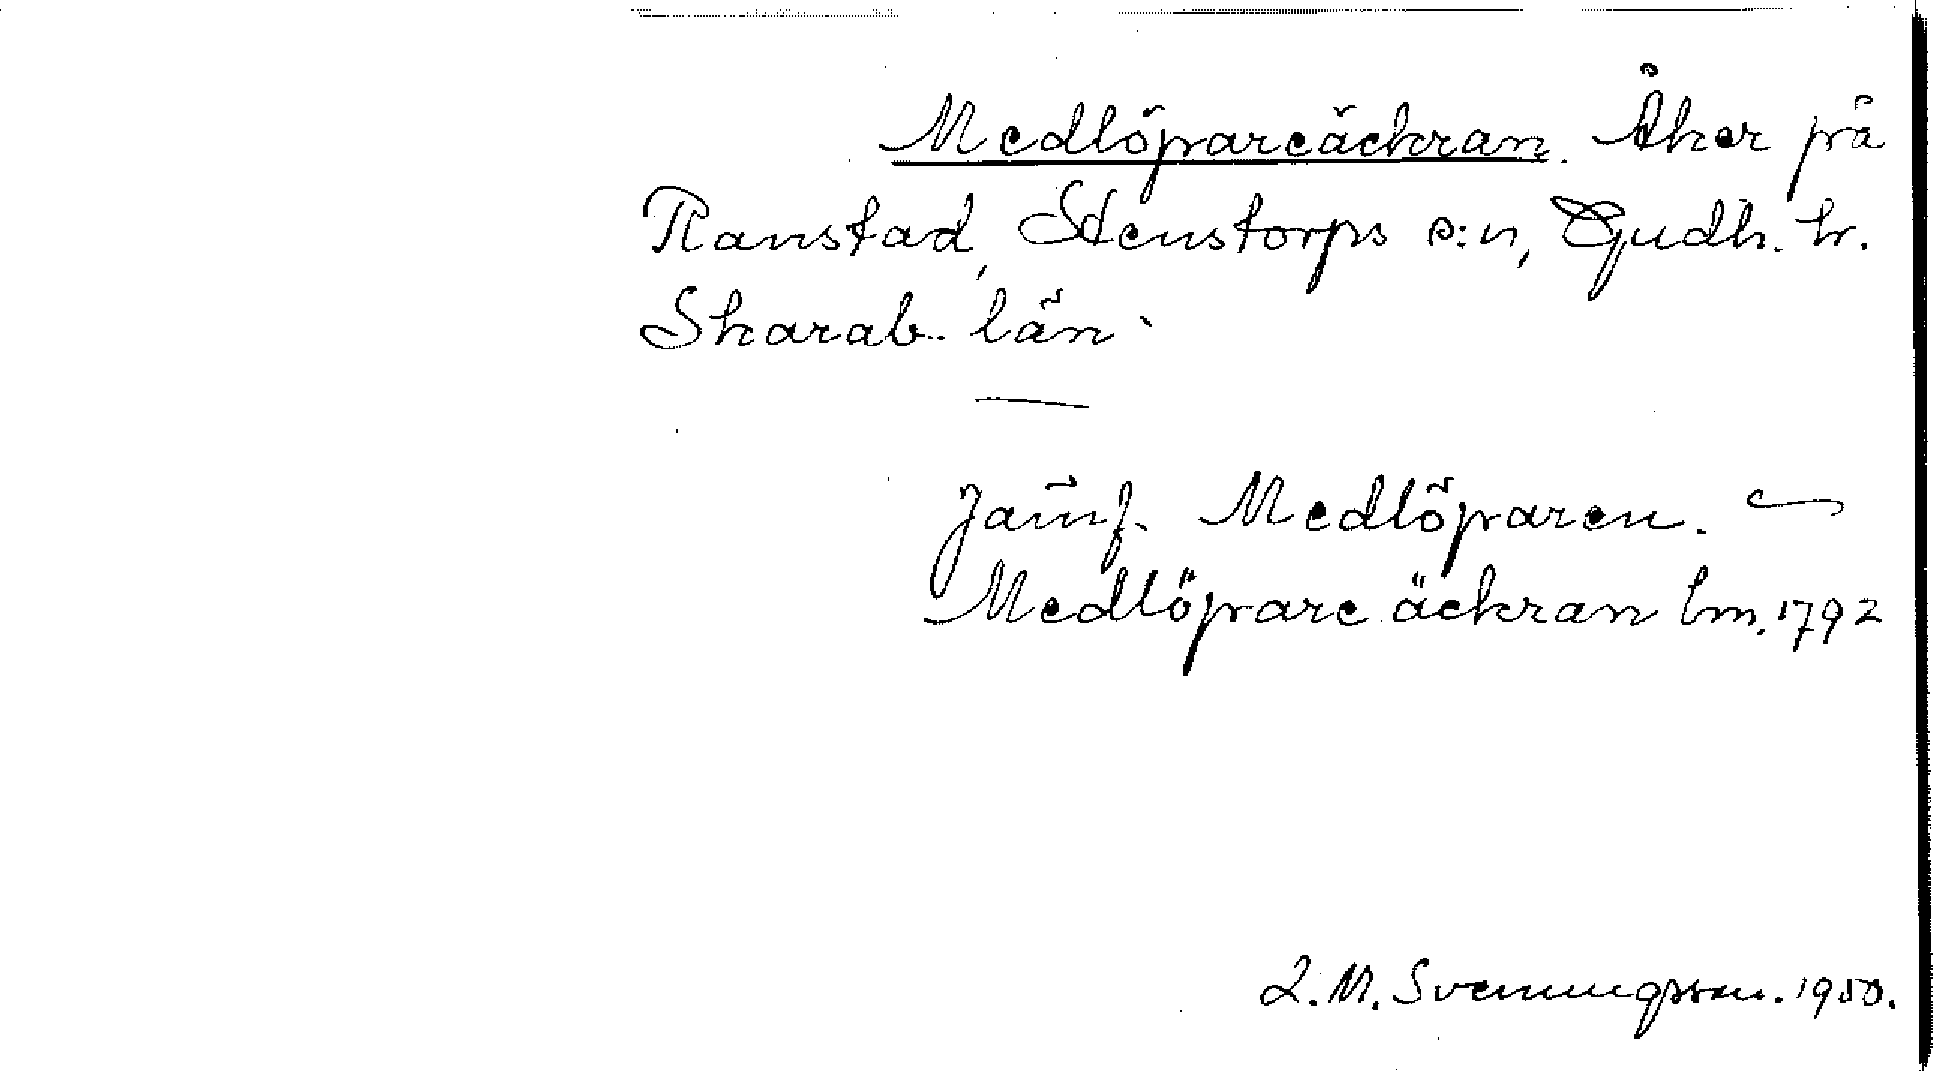 Medlöpareäckran. Åker på
Ranstad, Stenstorps s:n, Gudh. hr.
Skarab. län.
Jämf. Medlöparen. —
Medlöpare äckran lm. 1792
L. M. Svenungsson. 1950.